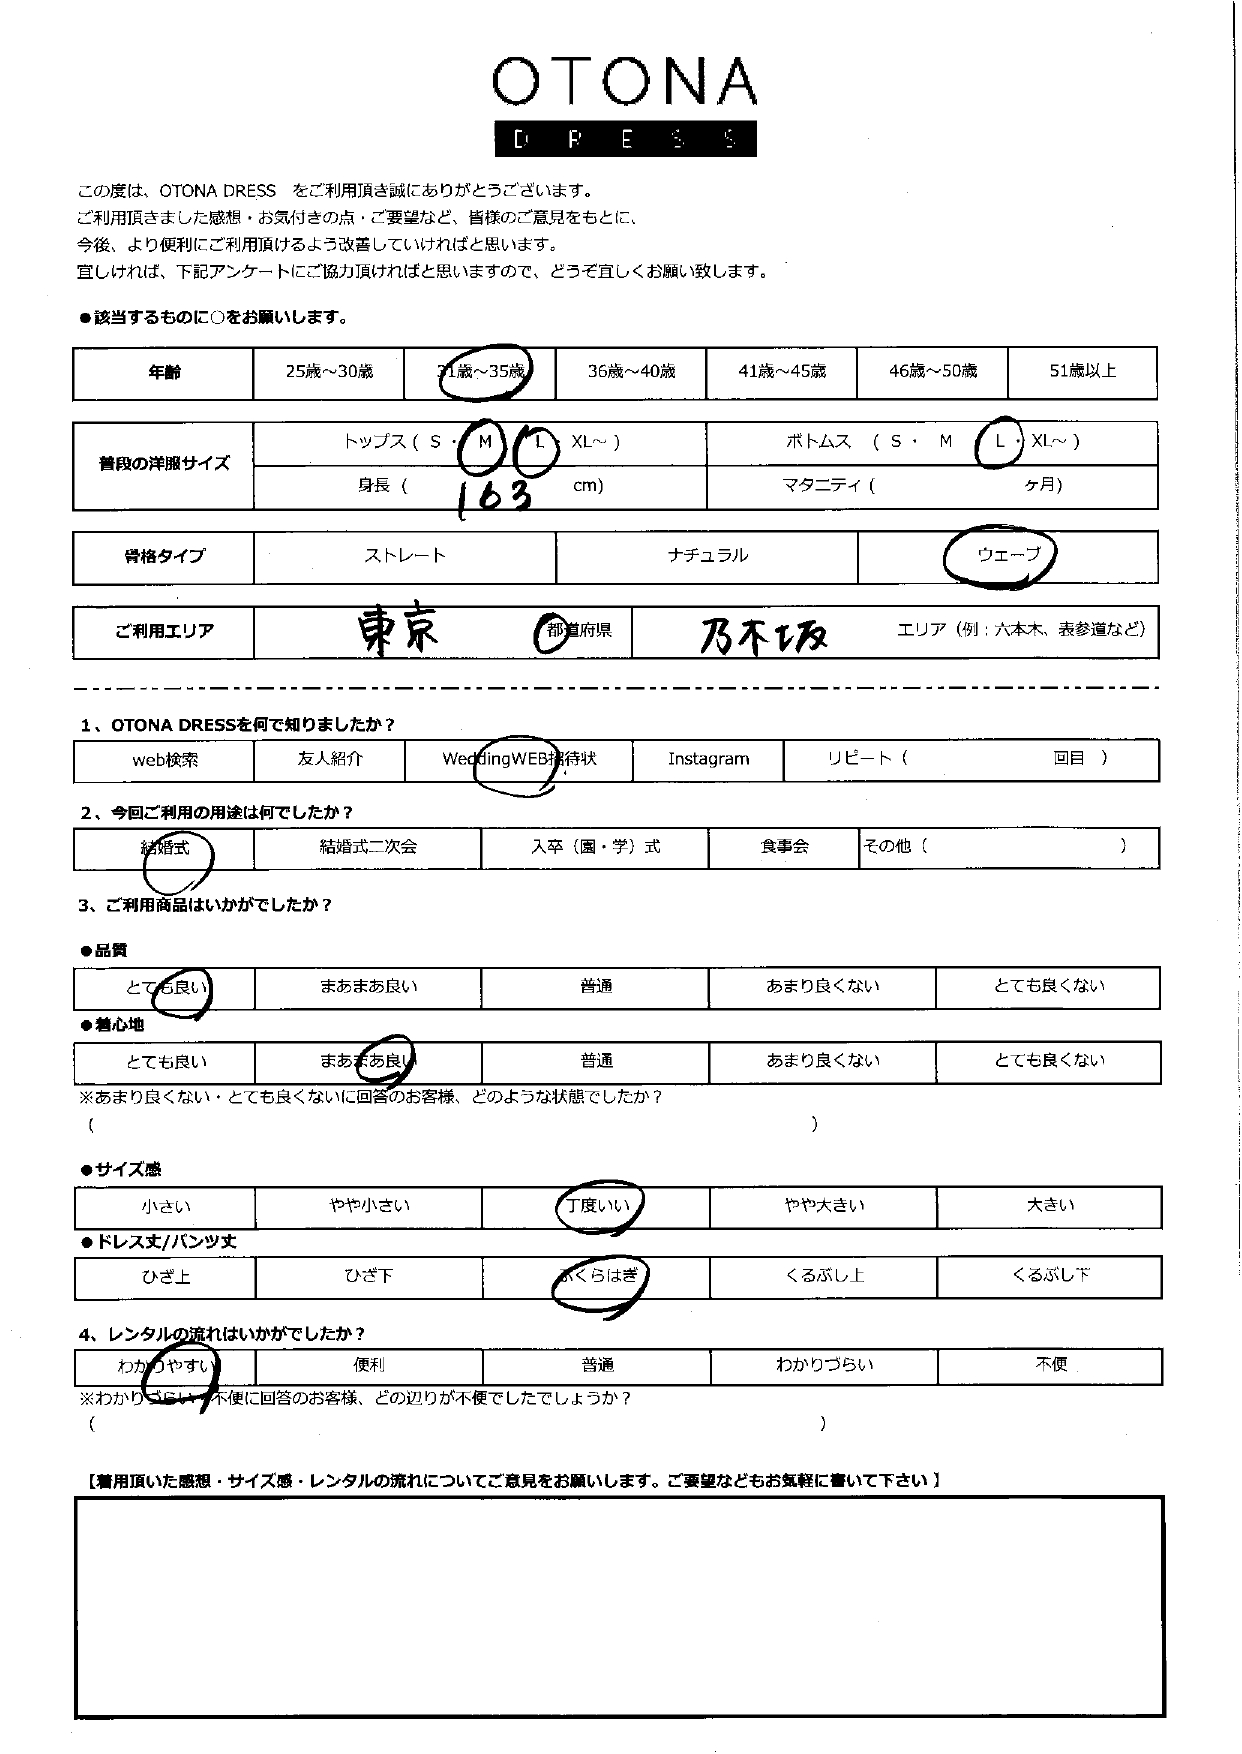 OTONA
DRESS
この度は、OTONA DRESS　をご利用頂き誠にありがとうございます。
ご利用頂きました感想・お気付きの点・ご要望など、皆様のご意見をもとに、
今後、より便利にご利用頂けるよう改善していければと思います。
宜しければ、下記アンケートにご協力頂ければと思いますので、どうぞ宜しくお願い致します。
●該当するものに○をお願いします。
年齢 25歳～30歳 31歳～35歳 36歳～40歳 41歳～45歳 46歳～50歳 51歳以上
普段の洋服サイズ トップス ( S ・ M ・ L ・ XL～ ) ボトムス ( S ・ M ・ L ・ XL～ )
身長 ( 163 cm) マタニティ ( ヶ月)
骨格タイプ ストレート ナチュラル ウェーブ
ご利用エリア 東京 都道府県 乃木坂 エリア（例：六本木、表参道など）
1、OTONA DRESSを何で知りましたか？
web検索 友人紹介 WeddingWEB招待状 Instagram リピート（ 回目 ）
2、今回ご利用の用途は何でしたか？
結婚式 結婚式二次会 入卒（園・学）式 食事会 その他（ ）
3、ご利用商品はいかがでしたか？
●品質
とても良い まあまあ良い 普通 あまり良くない とても良くない
●着心地
とても良い まあまあ良い 普通 あまり良くない とても良くない
※あまり良くない・とても良くないに回答のお客様、どのような状態でしたか？
( )
●サイズ感
小さい やや小さい 丁度いい やや大きい 大きい
●ドレス丈/パンツ丈
ひざ上 ひざ下 ふくらはぎ くるぶし上 くるぶし下
4、レンタルの流れはいかがでしたか？
わかりやすい 便利 普通 わかりづらい 不便
※わかりづらい・不便に回答のお客様、どの辺りが不便でしたでしょうか？
( )
【着用頂いた感想・サイズ感・レンタルの流れについてご意見をお願いします。ご要望などもお気軽に書いて下さい 】